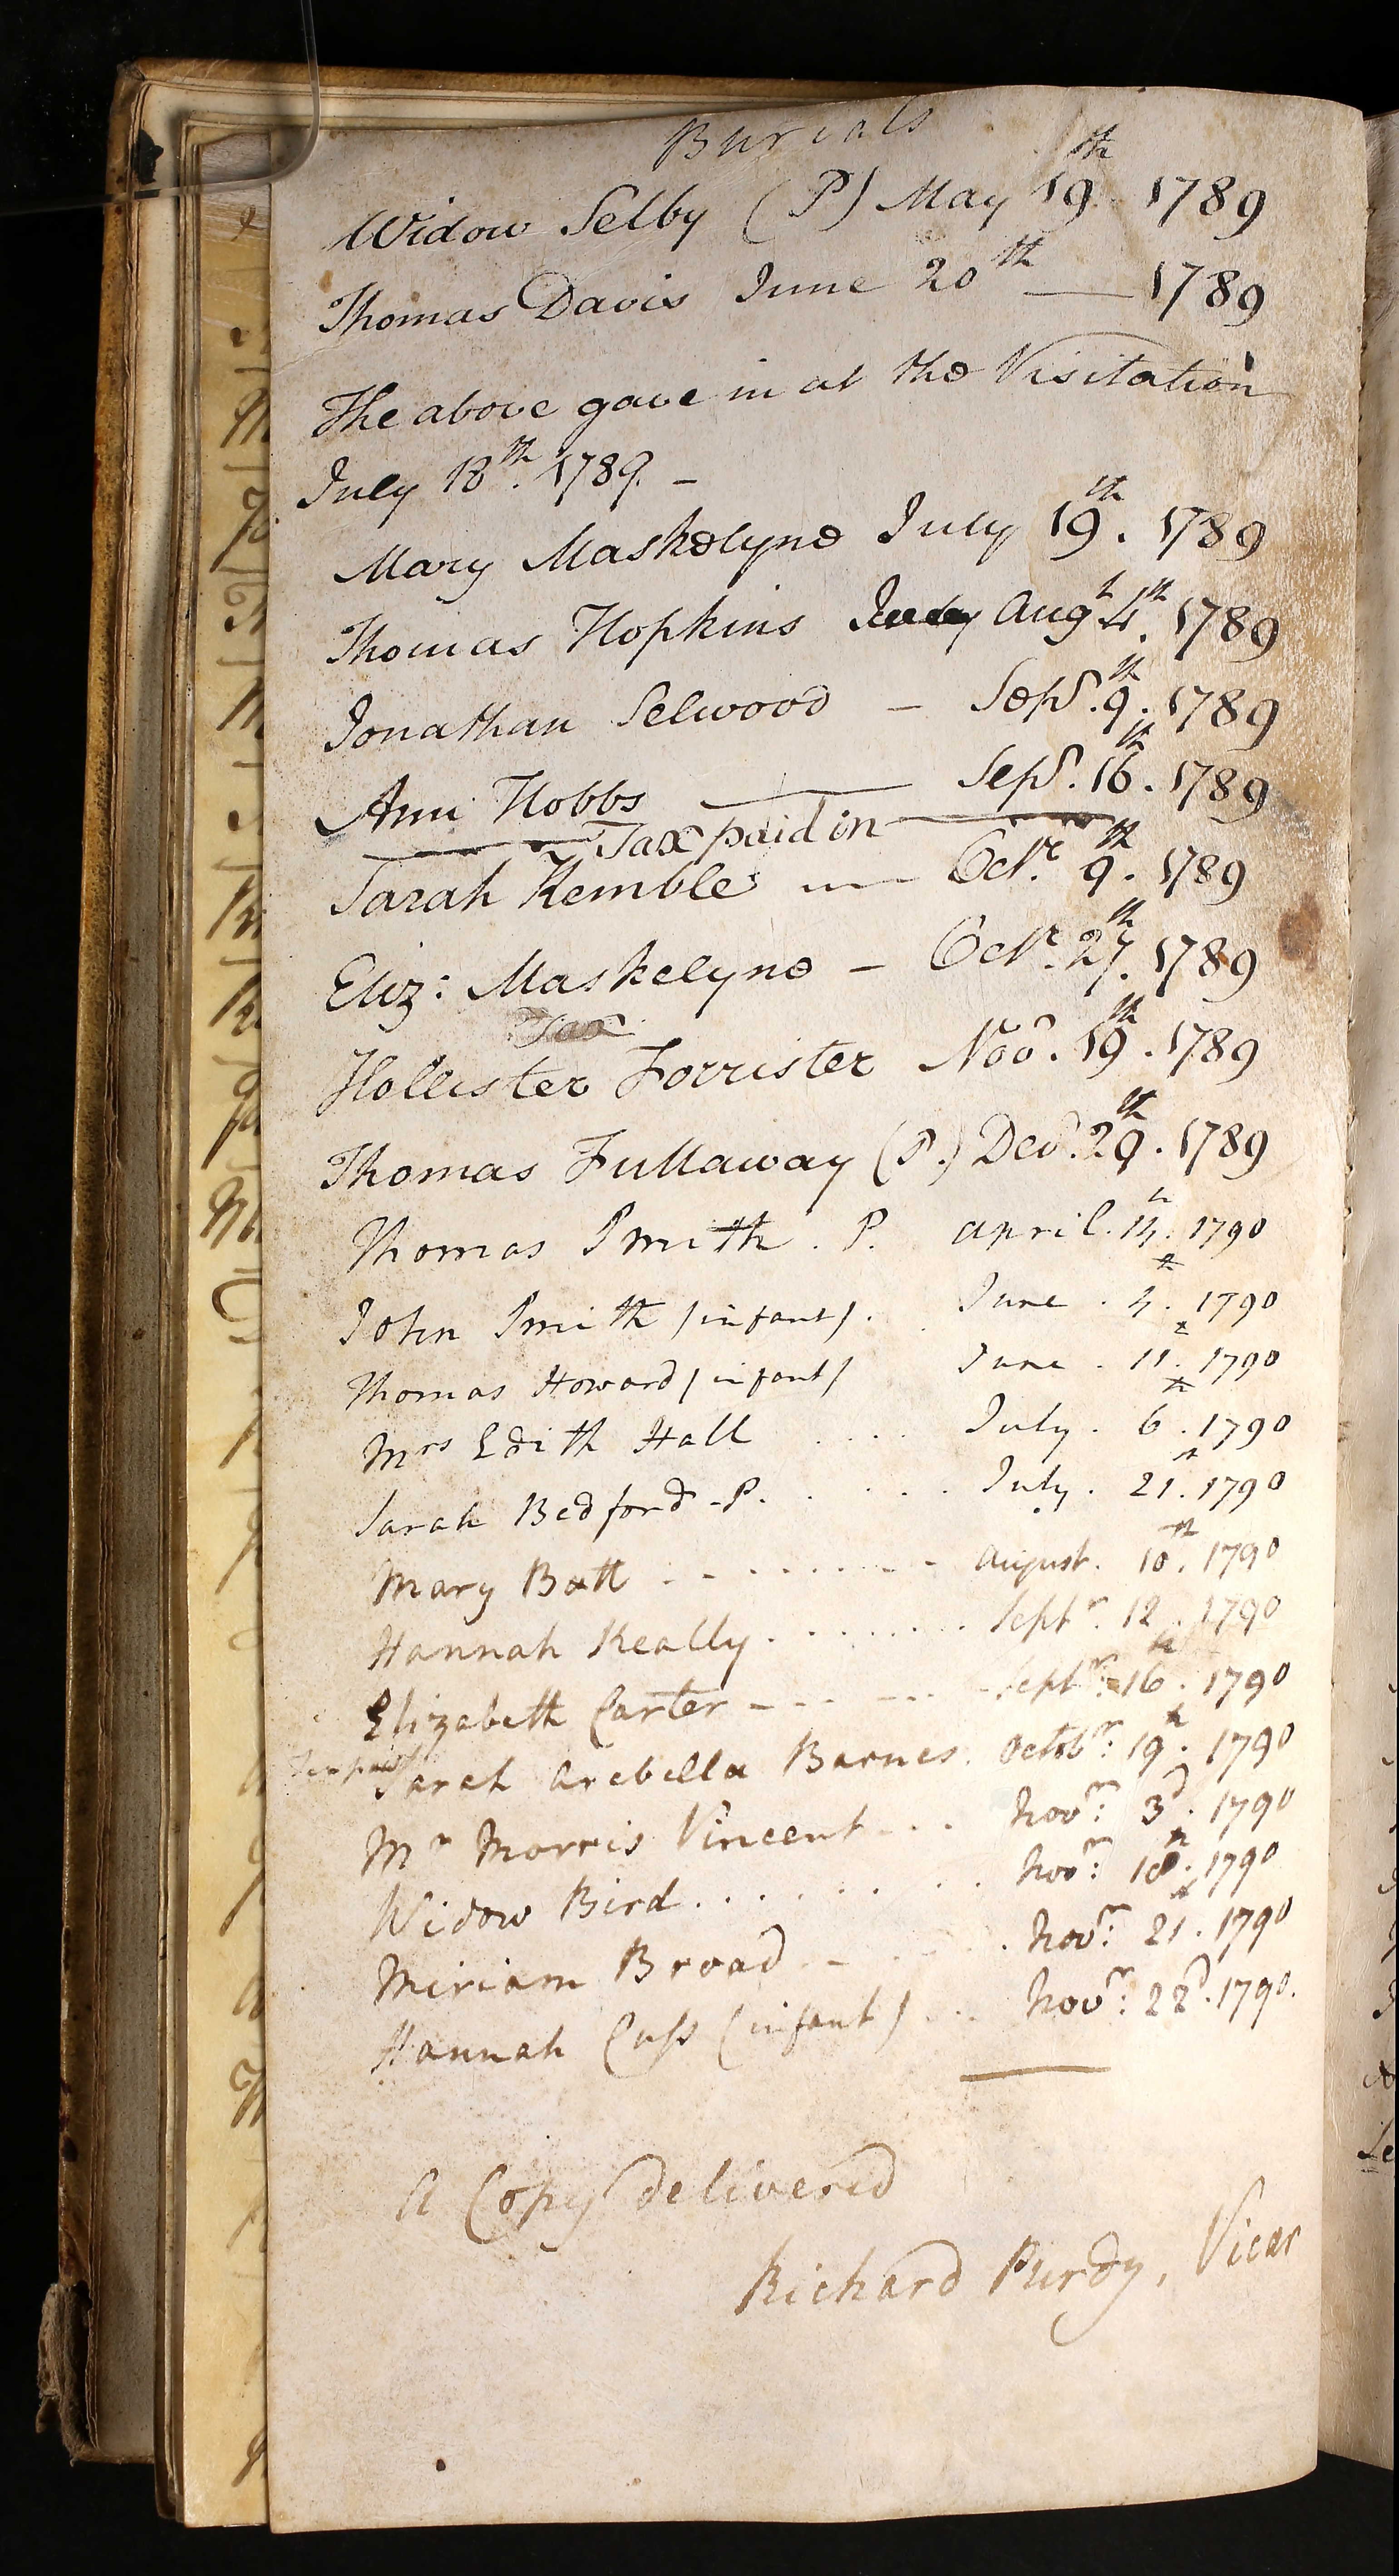 Burials
Widow Selby (P) May 19th 1789
Thomas Davis June 20th — 1789
The above gave in at the Visitation
July 18th. 1789. –
Mary Maskelyne July 19th. 1789
Thomas Hopkins July Augt 4th. 1789
Jonathan Selwood – Sepr. 9th. 1789
Ann Hobbs — Sepr. 16th. 1789
Tax paid in
Sarah Kemble — Octr. 9th. 1789
Eliz: Maskelyne – Octr. 27th. 1789
Tax
Hollister Forrister Nov. 19th. 1789
Thomas Fullaway (P.) Decr. 29th. 1789
Thomas Smith . P. April. 14th. 1790
John Smith (infant) . June . 4th. 1790
Thomas Howard (infant) June . 11th. 1790
Mrs Edith Hall . . . . July . 6th. 1790
Sarah Bedford - P. . . . . . July . 21st. 1790
Mary Batt . - - . . . . . - August. 10th. 1790
Hannah Keally . . . . . . . . Septr. 12. 1790
Elizabeth Carter - - - - - - Septr: 16th. 1790
Sarah Arebella Barnes. Octobr: 19th. 1790
Mr Morris Vincent - . . Novr: 3d. 1790
Widow Bird . . . . . . . . Novr: 10th. 1790
Miriam Broad - . . . Novr: 21st. 1790
Hannah Cuss (infant) . . Novr: 22d. 1790.
A Copy delivered
Richard Purdy, Vicar